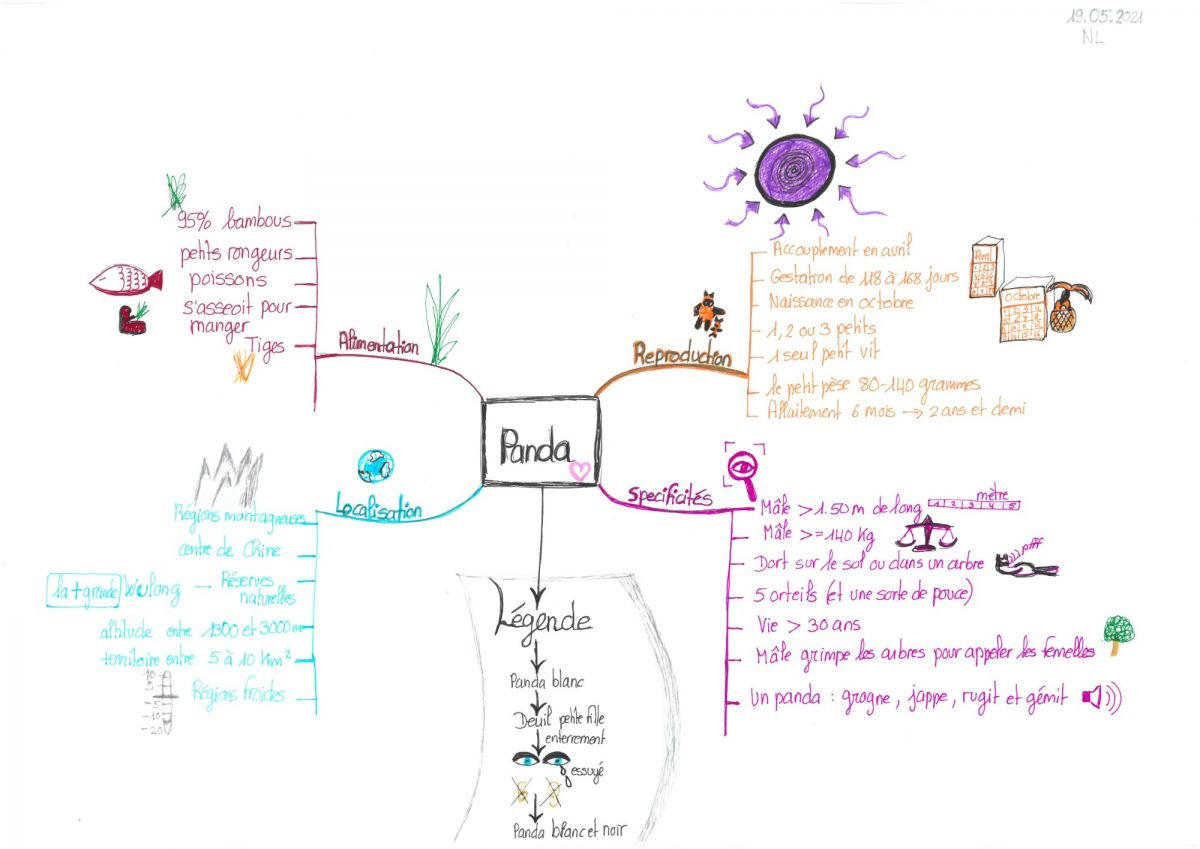 19.05.2021
NL
Panda
Alimentation
95% bambous
petits rongeurs
poissons
s'asseoit pour
manger
Tiges
Reproduction
Accouplement en avril
Gestation de 118 à 168 jours
Naissance en octobre
1, 2 ou 3 petits
1 seul petit vit
le petit pèse 80-140 grammes
Allaitement 6 mois → 2 ans et demi
Avril
Octobre
Localisation
Régions montagneuses
centre de Chine
la + grande Wolong — Réserves
naturelles
altitude entre 1300 et 3000m
territoire entre 5 à 10 Km²
Régions froides
10
5
-5
-10
-20
Specificités
Mâle > 1.50 m de long
mètre
1 2 3 4 5
Mâle >= 140 Kg
Dort sur le sol ou dans un arbre
5 orteils (et une sorte de pouce)
Vie > 30 ans
Mâle grimpe les arbres pour appeler les femelles
Un panda : grogne, jappe, rugit et gémit
Légende
Panda blanc
Deuil petite fille
enterrement
essuyé
Panda blanc et noir